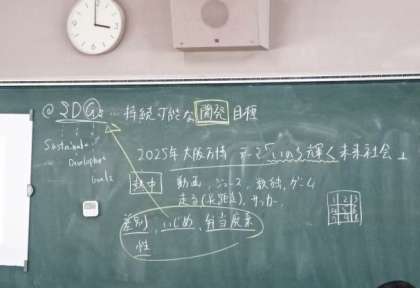 @ SDGs…持続可能な開発目標
Sustainable
Development
Goals
2025年 大阪万博 テーマ「いのち輝く未来社会」
熱中 動画、ニュース、数独、ゲーム
走る(長距離)、サッカー、
差別、いじめ、
性
1 2 3